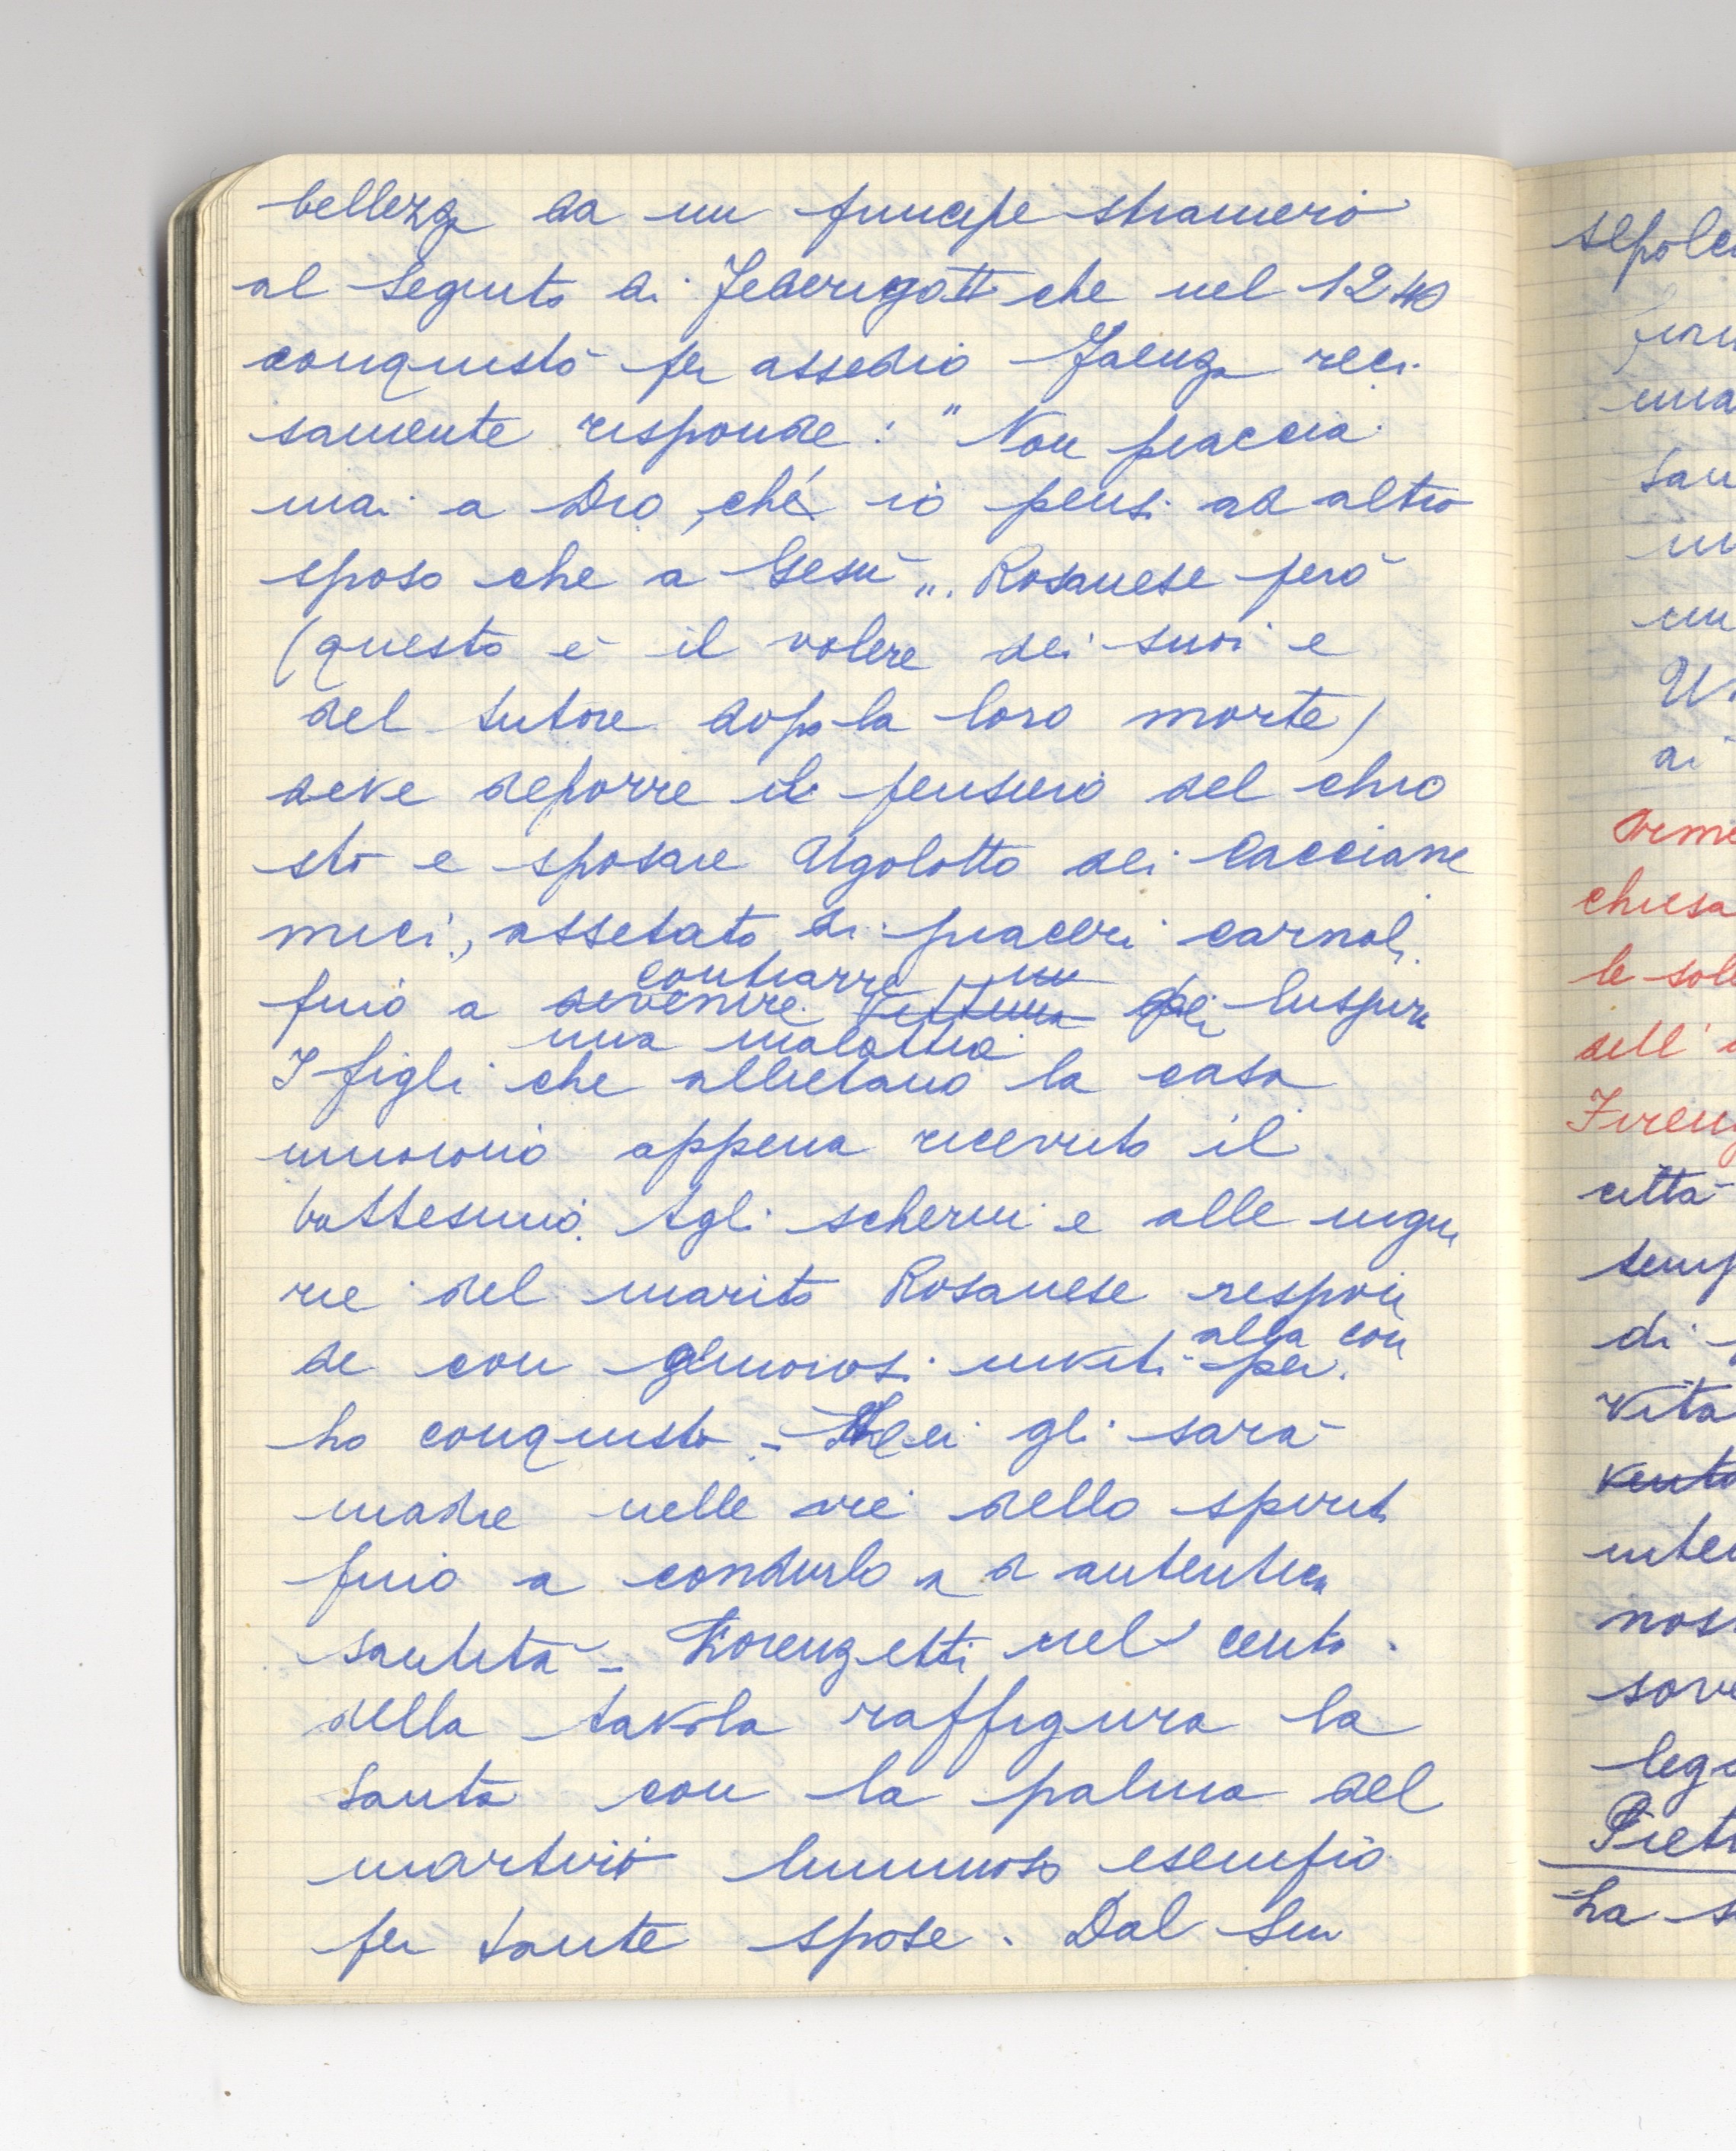 bellezza da un principe straniero
al seguito di Federigo II che nel 1240
conquistò per assedio Faenza reci
samente risponde: "Non piaccia
mai a Dio, che io pensi ad altro
sposo che a Gesù". Rosanese però
(questo è il volere dei suoi e
del tutore dopo la loro morte)
deve deporre il pensiero del chio
stro e sposare Ugolotto dei Cacciane
mici, assetato di piaceri carnali
contrarre
fino a divenire vittima per
una malattia
I figli che allietano la casa
muoiono appena ricevuto il
battesimo. Agli scherni e alle ingiu
rie del marito Rosanese respon
alla con
de con generosi inviti per
ho conquisto - Lei gli sarà
madre nelle vie dello spirito
fino a condurlo ad autentica
santità - Lorenzetti nel centro
della tavola raffigura la
Santa con la palma del
martirio luminoso esempio
per tante spose. Dal suo
sepolc
una
san
un
un
ai
chiesa
le sol
dell'
Firenz
città
temp
di
Vita
nost
sov
lega
Piet
ha s